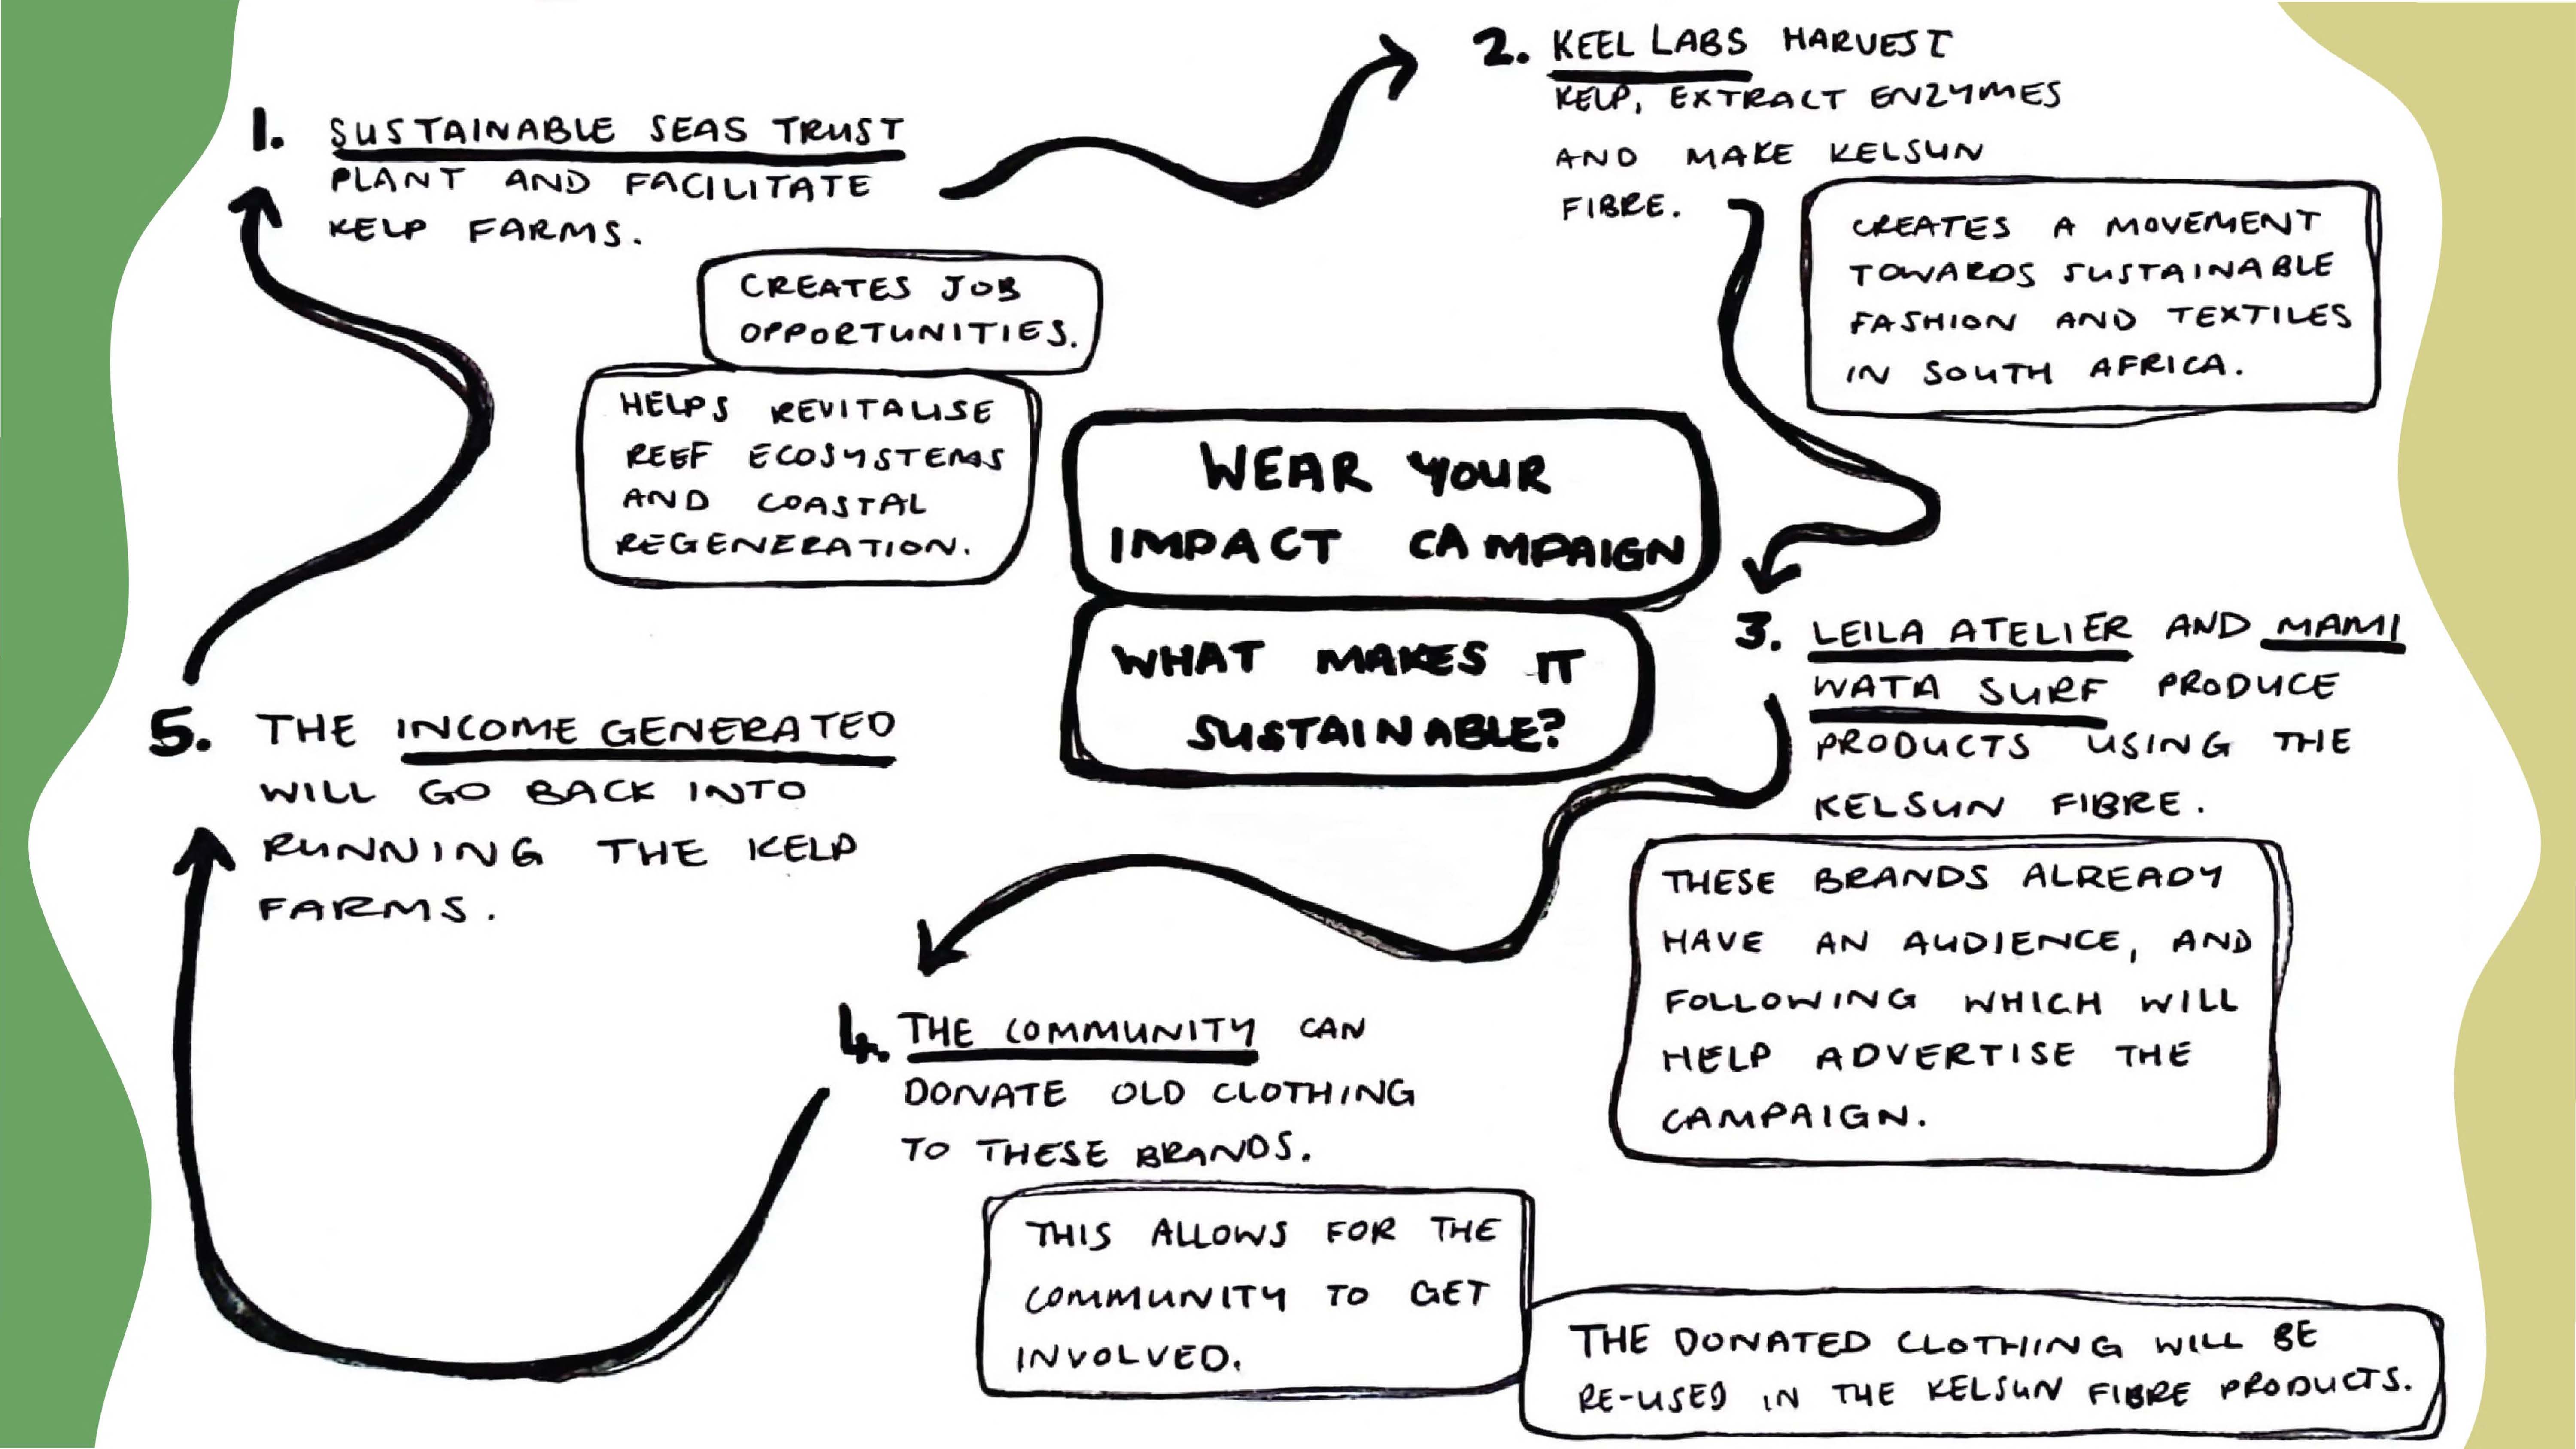 1. SUSTAINABLE SEAS TRUST
PLANT AND FACILITATE
KELP FARMS.
CREATES JOB
OPPORTUNITIES.
HELPS REVITALISE
REEF ECOSYSTEMS
AND COASTAL
REGENERATION.
2. KEEL LABS HARVEST
KELP, EXTRACT ENZYMES
AND MAKE KELSUN
FIBRE.
CREATES A MOVEMENT
TOWARDS SUSTAINABLE
FASHION AND TEXTILES
IN SOUTH AFRICA.
WEAR YOUR
IMPACT CAMPAIGN
WHAT MAKES IT
SUSTAINABLE?
3. LEILA ATELIER AND MAMI
WATA SURF PRODUCE
PRODUCTS USING THE
KELSUN FIBRE.
THESE BRANDS ALREADY
HAVE AN AUDIENCE, AND
FOLLOWING WHICH WILL
HELP ADVERTISE THE
CAMPAIGN.
4. THE COMMUNITY CAN
DONATE OLD CLOTHING
TO THESE BRANDS.
THIS ALLOWS FOR THE
COMMUNITY TO GET
INVOLVED.
THE DONATED CLOTHING WILL BE
RE-USED IN THE KELSUN FIBRE PRODUCTS.
5. THE INCOME GENERATED
WILL GO BACK INTO
RUNNING THE KELP
FARMS.